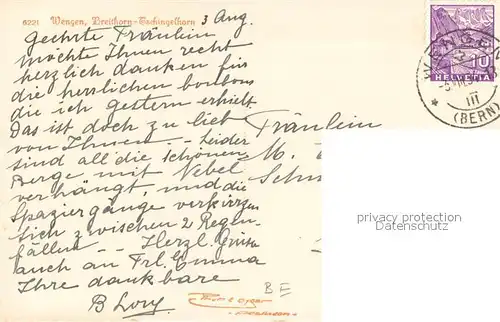 6221 Wengen, Breithorn-Tschingelhorn
3 Aug.
geehrte Fräulein
möchte Ihnen recht
herzlich danken für
die herrlichen bonbons
die ich gestern erhielt
Das ist doch zu lieb
von Ihnen — leider
sind all die schönen
Berge mit Nebel
verhängt, und die
Spaziergänge verkürzen
sich zwischen 2 Regen-
fällen — Herzl. Grüsse
auch an Frl. Emma
Ihre dankbare
B Lory
Fräulein
M.
HELVETIA
10
WENGEN
III
(BERN)
privacy protection
Datenschutz
BE